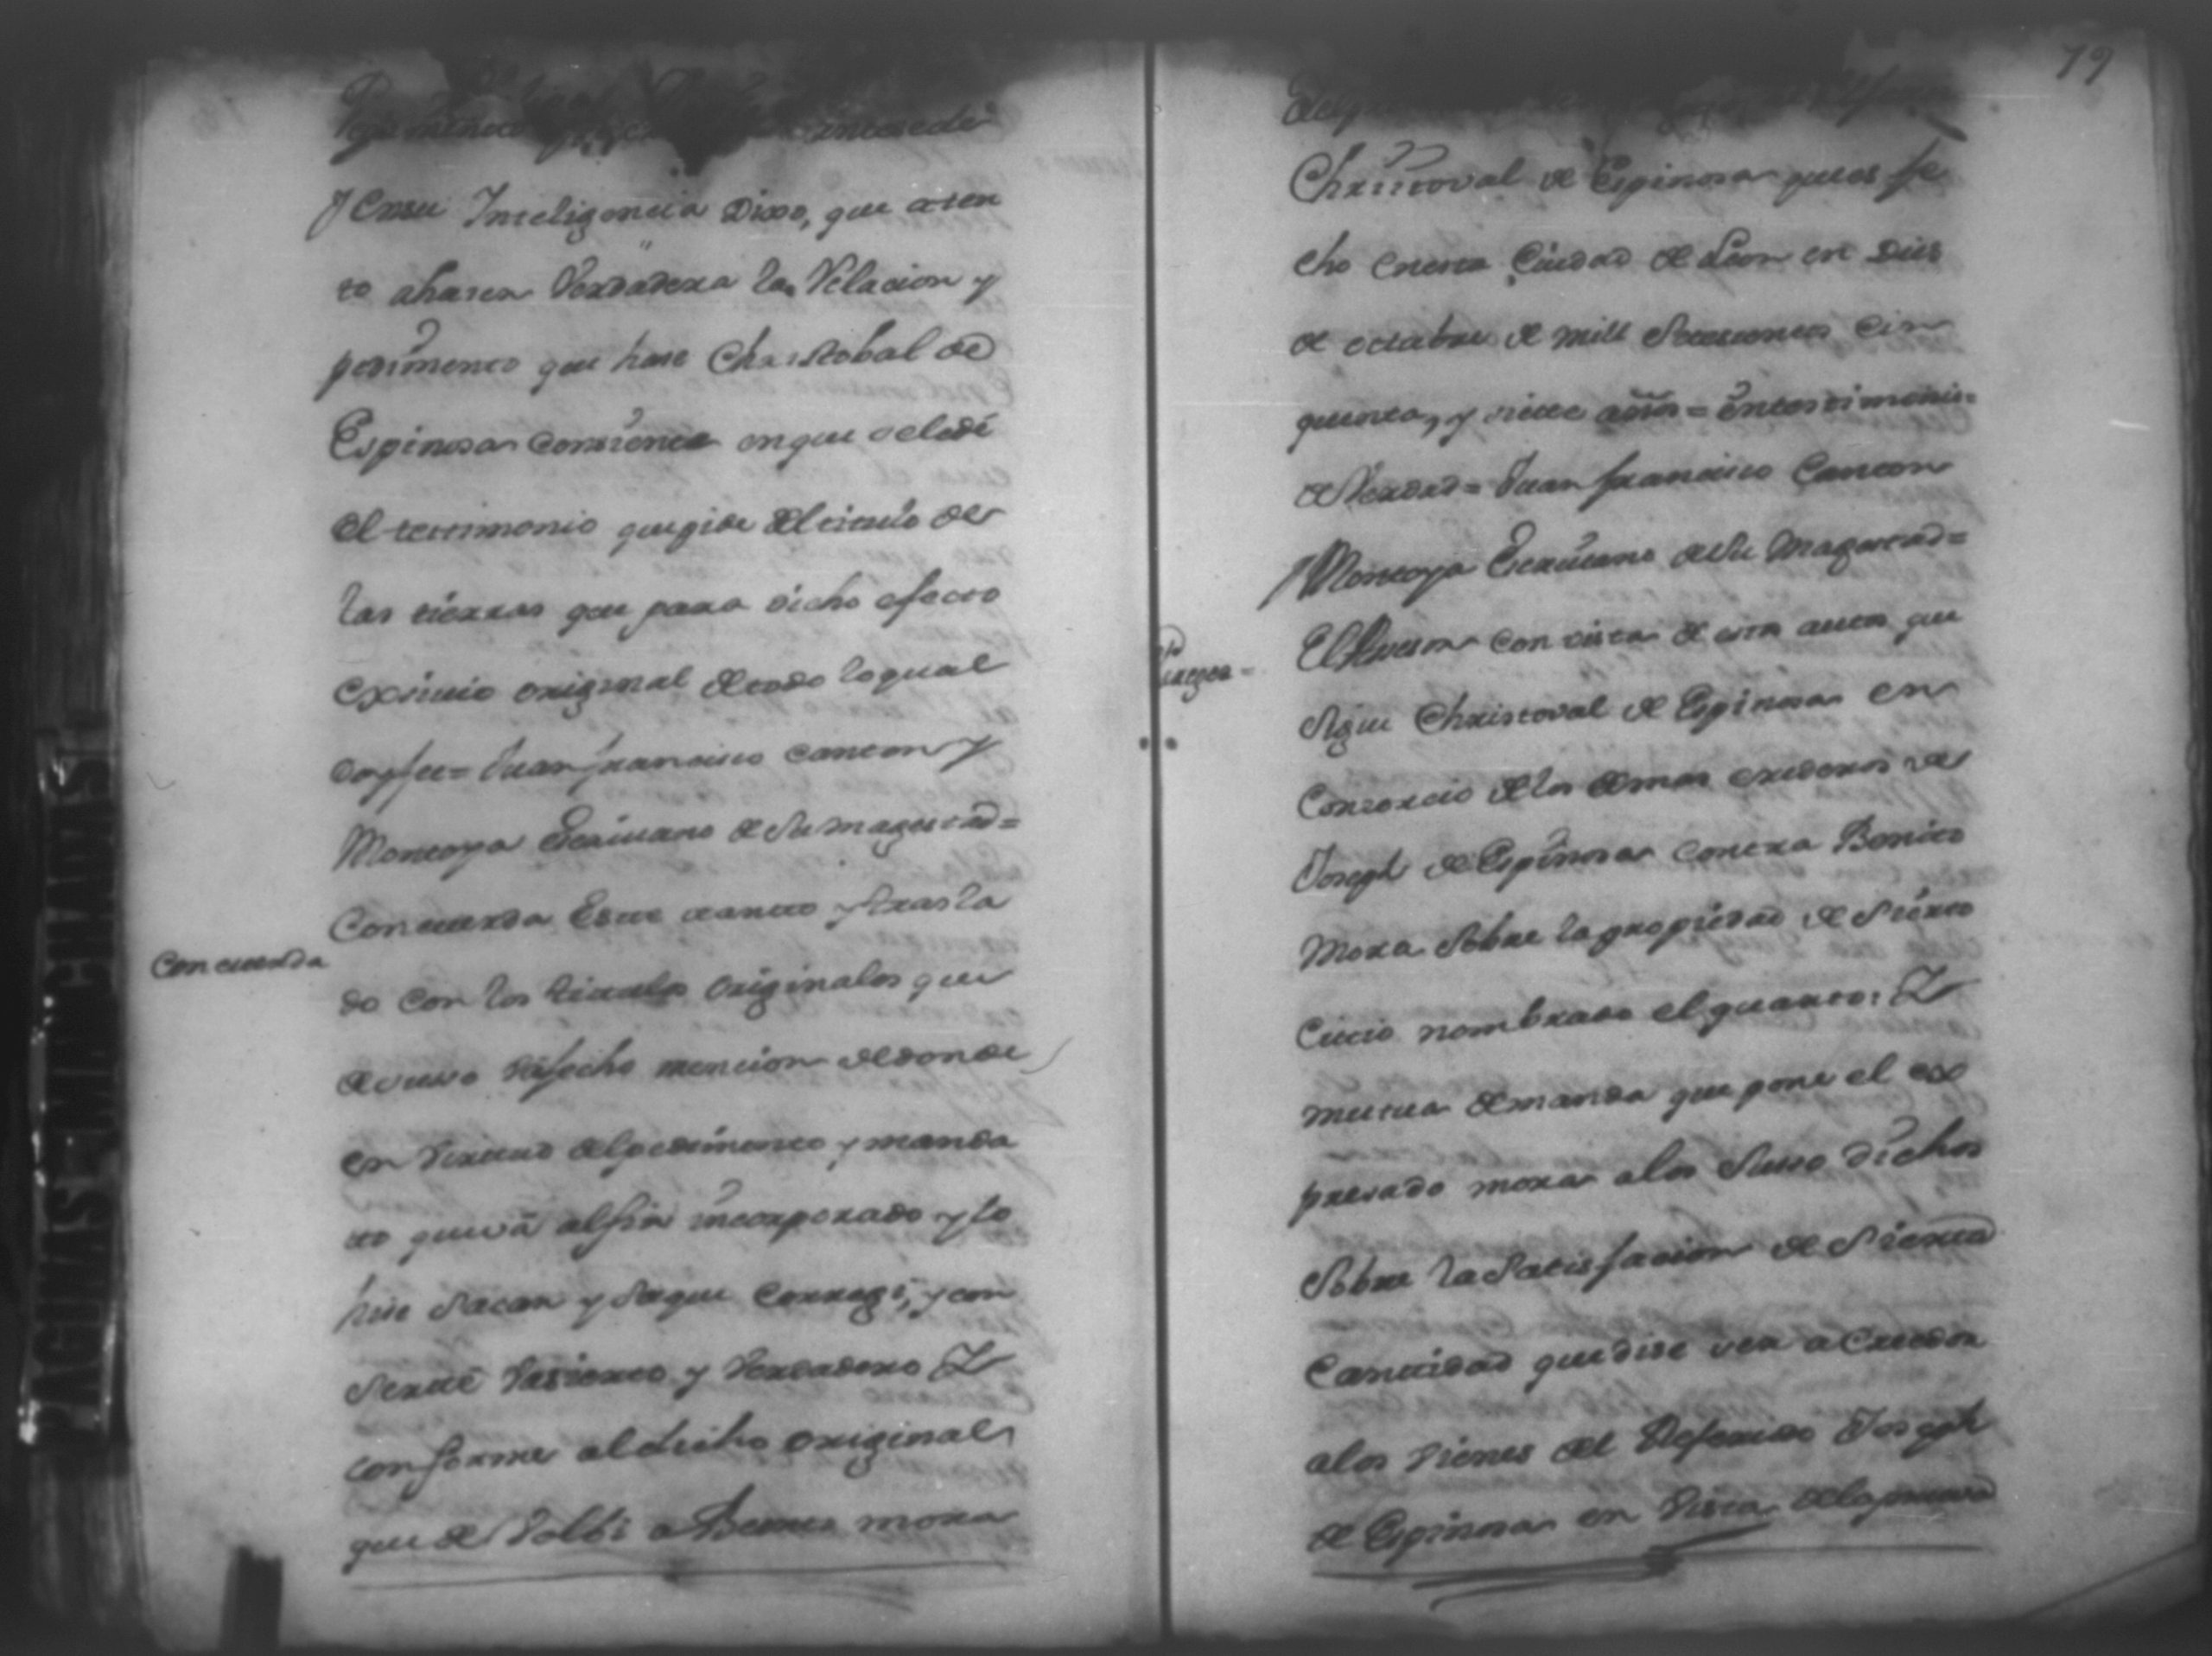 antesede
y en su Inteligencia Dixo, que aten
to a haser Verdadera la Relacion y
pedimento que hase Christobal de
Espinosa consiente en que se le dé
el testimonio que pide del titulo de
las tierras que para dicho efecto
exsiuio original de todo lo qual
doy fee = Juan francisco canton y
Montoya Escriuano de Su magestad =
Concuerda
Concuerda Este tanto y trasla
do con los titulos originales que
de suso vá fecho mencion de donde
en Virtud del pedimento y manda
to que vá al fin incorporado y lo
hise sacar y saque corregi, y con
serté Va sierto y Verdadero Z
conforme al dicho original
que de Volbi a Benito mora
79
Christoval de Espinosa que es fe
cho en esta Ciudad de Leon en Dies
de octubre de mill Setecientos cin
quenta, y siete años = en testimonio
de Verdad = Juan francisco Canton
Montoya Escriuano de Su Magestad =
El Asesor con vista de estos autos que
sigue Christoval de Espinosa en
Consorcio de los demas erederos de
Joseph de Espinosa contra Benito
Mora Sobre la propiedad de Sierto
Citio nombrado el quarto: Z
mutua demanda que pone el ex
presado mora a los Suso dichos
Sobre la Satisfacion de Sierta
Cantidad que dise ser a Creedor
a los vienes del Referido Joseph
de Espinosa en Vista de la prueva